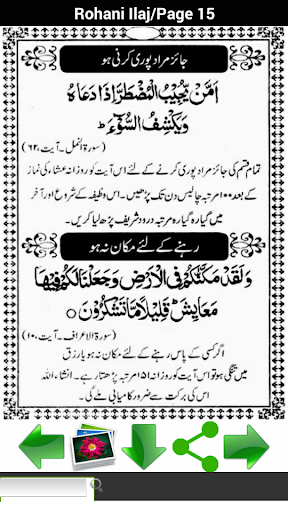 Rohani Ilaj/Page 15
جائز مراد پوری کرنی ہو
اَمَّنْ یُّجِیْبُ الْمُضْطَرَّ اِذَا دَعَاهُ
وَیَکْشِفُ السُّوْٓءَ ط
(سورۃ النمل۔آیت،۶۲)
تمام قسم کی جائز مراد پوری کرنے کے لئے اس آیت کو روزانہ عشاء کی نماز
کے بعد ۱۰۰ مرتبہ چالیس دن تک پڑھیں۔ اس وظیفہ کے شروع اور آخر
میں گیارہ گیارہ مرتبہ درود شریف پڑھ لیا کریں۔
رہنے کے لئے مکان نہ ہو
وَلَقَدْ مَکَّنّٰکُمْ فِی الْاَرْضِ وَجَعَلْنَا لَکُمْ فِیْهَا
مَعَایِشَ ط قَلِیْلًا مَّا تَشْکُرُوْنَ ○
(سورۃ الاعراف۔آیت،۱۰)
اگر کسی کے پاس رہنے کے لئے مکان نہ ہو یا رزق
میں تنگی ہو تو اس آیت کو روزانہ ۱۵۱ مرتبہ پڑھا کرے۔ انشاء اللہ
اس کی برکت سے ضرور کامیابی ملے گی۔